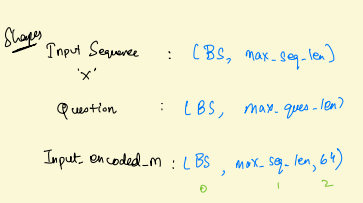 Shapes
Input Sequence : (BS, max_seq_len)
'x'
Question : (BS, max_ques_len)
Input_encoded_m : (BS, max_seq_len, 64)
0 1 2